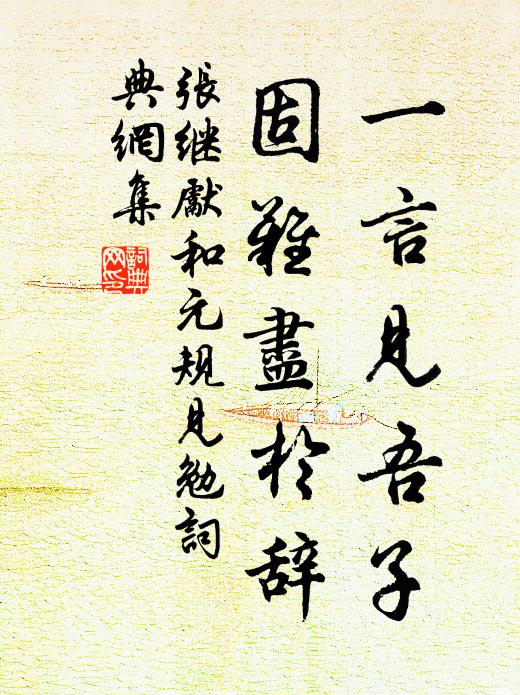 一言見吾子
固難盡於辞
張继獻和元規見勉詞
典網集
詞典網印